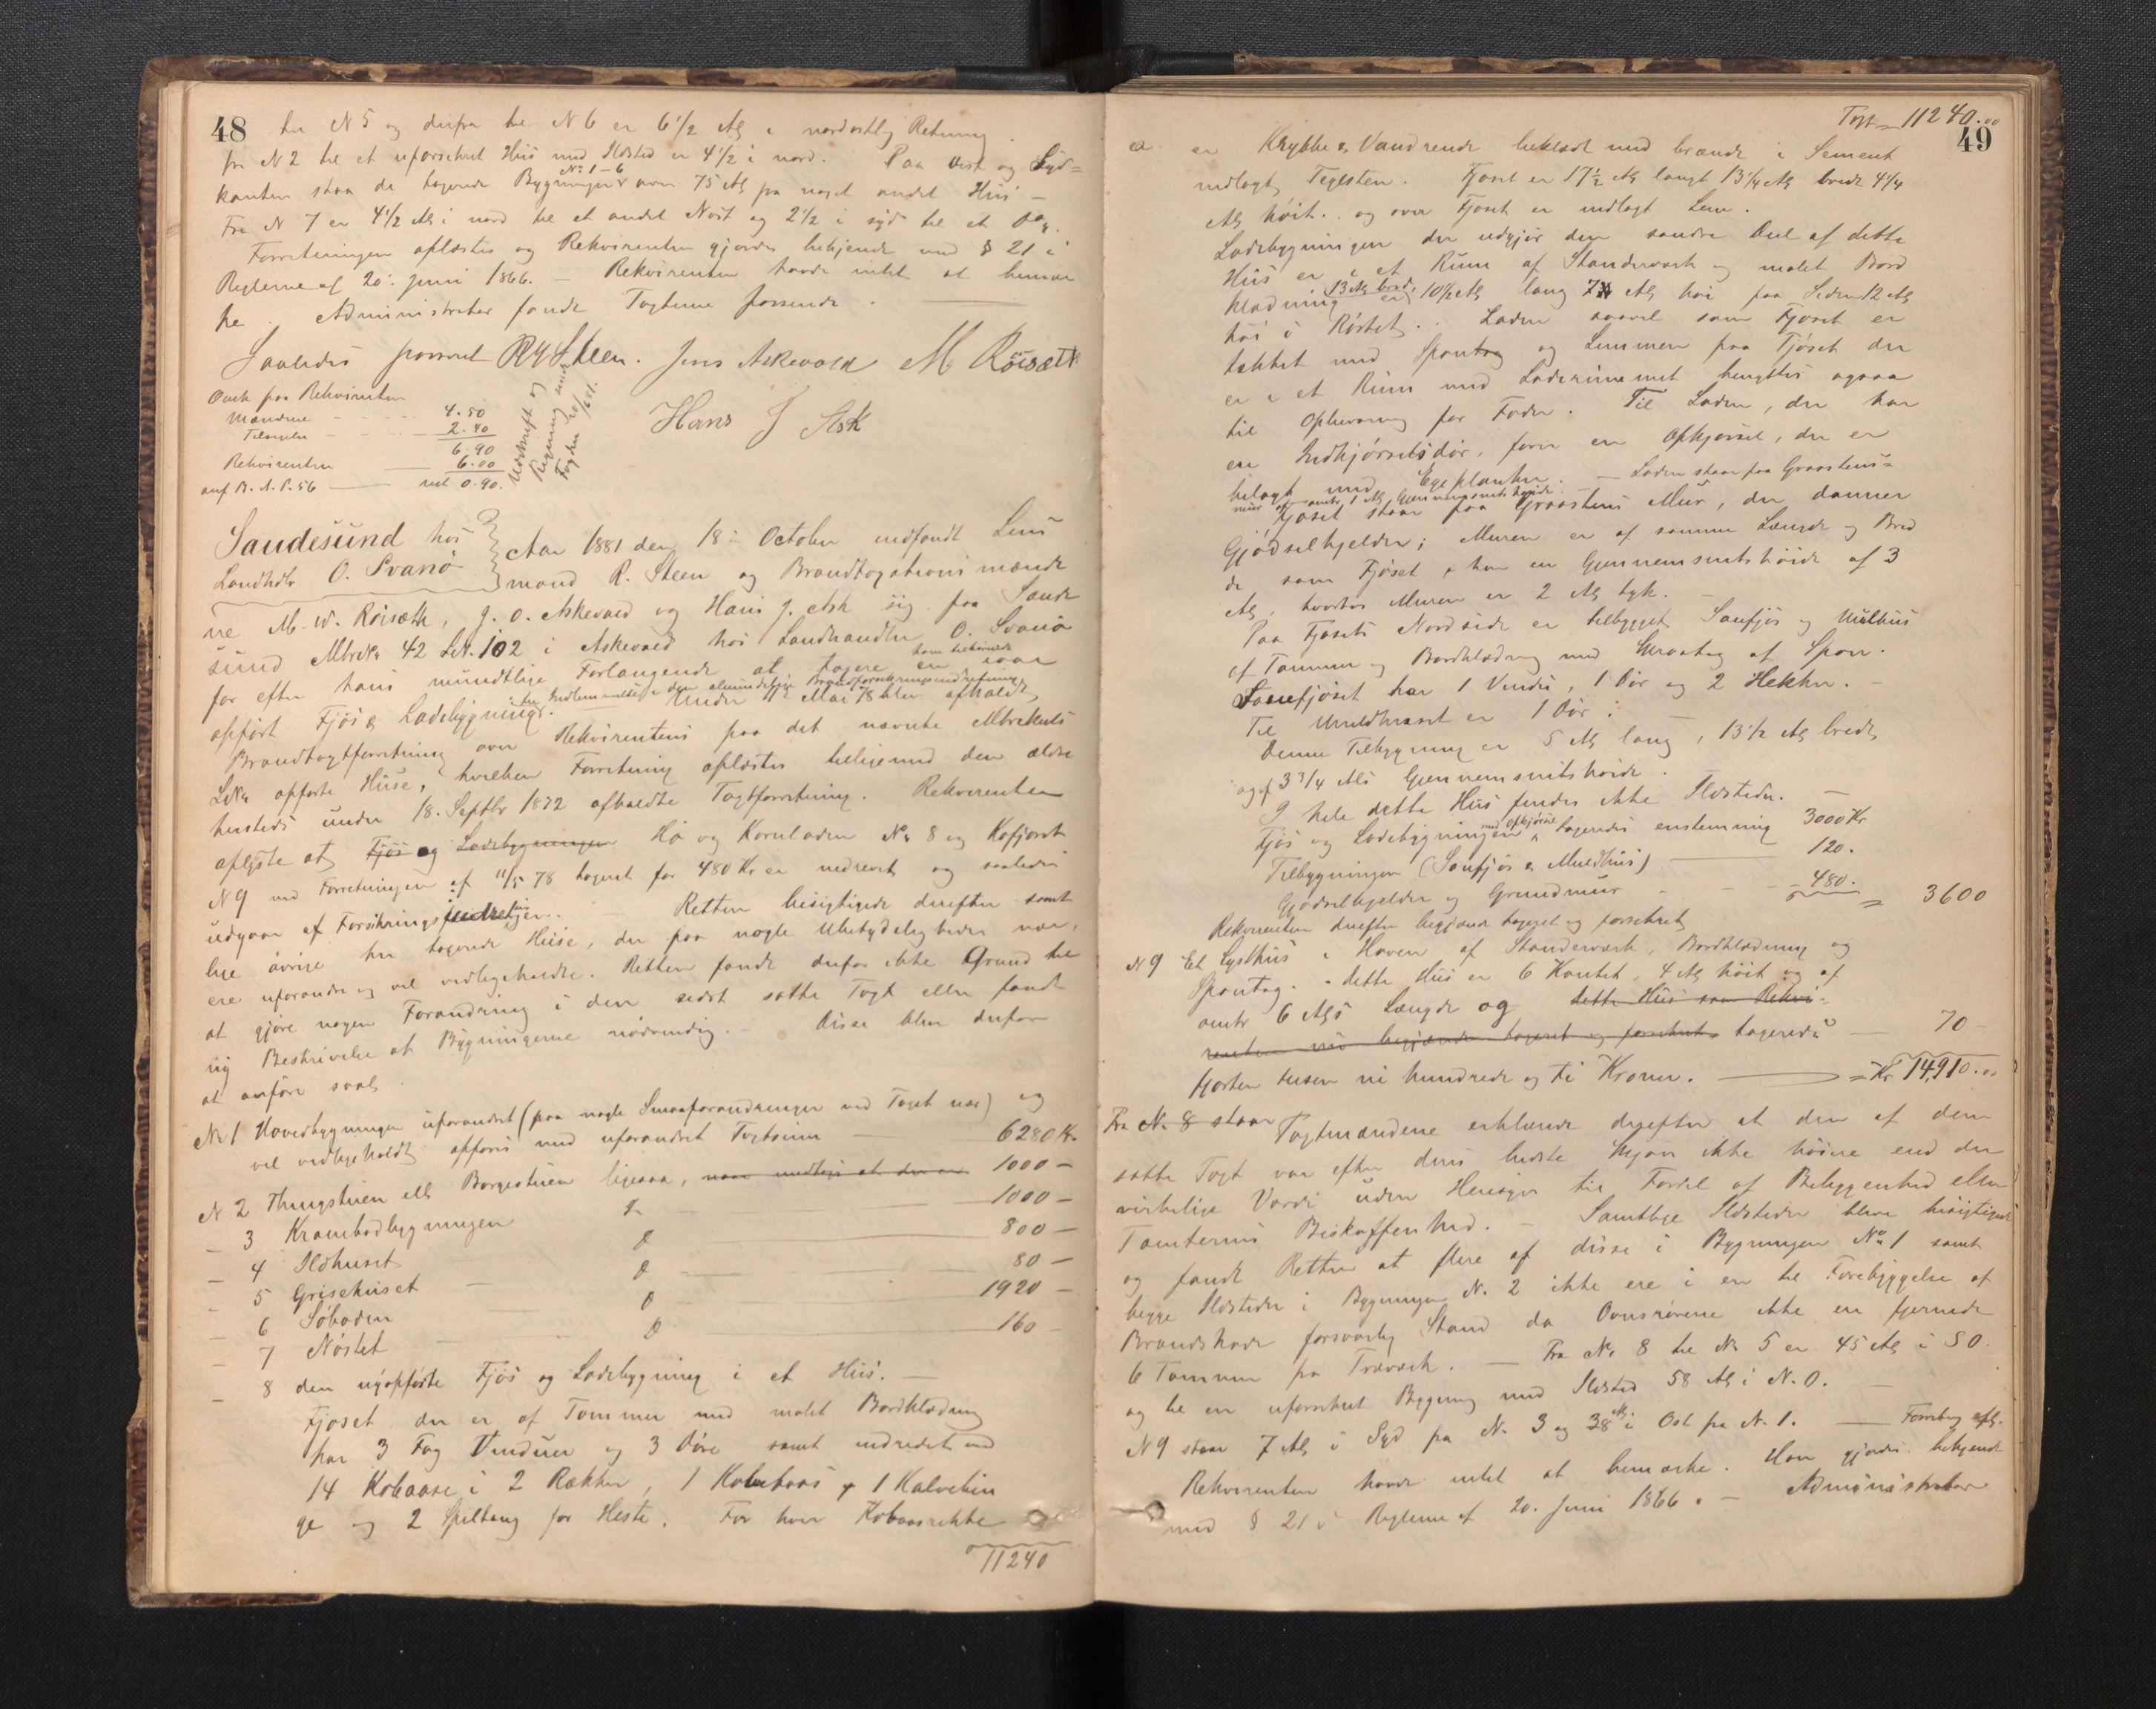 48
til N 5 og derfra til N 6 er 6 1/2 Al i nordostlig Retning
fra N 2 til et uforsikret Hus med Ildsted er 4 1/2 i nord. Paa Vest og Syd=
kanten staa de taxerede Bygninger No 1-6 over 75 Al fra noget andet Hus -
Fra N 7 er 4 1/2 Al i nord til et andet Nöst og 2 1/2 i syd til et
Forretningen oplæstes og Rekvirenten gjordes bekjendt med § 21 i
Reglerne af 20. Juni 1866. - Rekvirenten havde intet at bemær
ke. Administrator fandt Taxterne passende.
Saaledes passeret R Steen. Jens Askevold M Röisæth
Hans J Ask
Omk paa Rekvirenten
Mændene - 4.50
2.40
6.90
Rekvirenten 6.00
anf B. A. P. 56 rest 0.90.
Udskrift og
Regning sendt
Fogden
Sandesund hos
Landhdlr O. Svanö
Aar 1881 den 18 October indfandt Lens
mand R. Steen og Brandtaxationsmænde
ne M. W. Röisæth, J. O. Askevold og Hans J. Ask sig paa Sande
sund MtrNr 42 LNr. 102 i Askevold hos Landhandler O. Svanö
for efter hans mundtlige Forlangende at taxere en sammesteds
opfört Fjös & Ladebygning til Indlemmelse i den almindelige Brandforsikringsindretning. Under 11 Mai 78 blev afholdt
Brandtaxtforretning over Rekvirentens paa det nævnte Mtrikuls
LNr opförte Huse, hvilken Forretning oplæstes tilligemed den ældre
hersteds under 18. Septbr 1872 afholdte Taxtforretning. Rekvirenten
oplyste at Fjös og Ladebygningen Hö og Kornladen No 8 og Kofjöset
N 9 ved Forretningen af 11/5 78 taxeret for 480 Kr er nedrevet og saaledes
udgaar af Forsikrings. Retten besigtigede derefter samt
lige övrige her taxerede Huse, der paa nogle Ubetydeligheder nær,
ere uforandre og vel vedligeholdte. Retten fandt derfor ikke Grund til
at gjöre nogen Forandring i den sidst satte Taxt eller fandt
ny Beskrivelse af Bygningerne nödvendig. - Disse blev derfor
at anföre saal.
No 1 Hovedbygningen uforandret (paa nogle Smaaforandringer ved Taget nær) og
vel vedligeholdt opföres med uforandret Taxtsum 6280 Kr.
N 2 Thingstuen ell. Borgestuen ligesaa, 1000 -
- 3 Krambodbygningen 1000 -
- 4 Ildhuset 800 -
- 5 Grisehuset 80 -
- 6 Söboden 1920 -
- 7 Nöstet 160 -
- 8 den nyopförte Fjös og Ladebygning i et Hus. -
Fjöset der er af Tömmer med malet Bordklædning
har 3 Fag Vinduer og 3 Döre samt indredet med
14 Kobaase i 2 Rækker, 1 Kalvebaas & 1 Kalvebin
ge og 2 Spiltaug for Heste. For hver Kobaasrække
11240
49
Taxt 11240.00
er Krybbe & Vandrende beklædt med brændt i Sement
indlagt Teglsten. Fjöset er 17 1/2 Al langt 13 1/4 Al bredt 4 1/4
Al höit. og over Fjöset er indlagt Lem.
Ladebygningen der udgjör den söndre Deel af dette
Hus er i et Rum af Standerværk og malet Bord
klædning er 13 Al bred, 10 1/2 Al lang 7 Al höi paa Siden 12 Al
höi i Röstet. Laden saavel som Fjöset er
tækket med Spontag og Lemmen paa Fjöset der
er i et Rum med Laderummet benyttes ogsaa
til Opbevaring for Foder. Til Laden, der har
en Indkjörselsdör, förer en Opkjörsel, der er
belagt med Egeplanker. - Laden staar paa Graastens=
mur af omtr 1 Al Gjennemsnitshöide.
Fjöset staar paa Graastens Mur, der danner
Gjödselkjelder; Muren er af samme Længde og Bred
de som Fjöset, & har en Gjennemsnitshöide af 3
Al, hvorhos Muren er 2 Al tyk. -
Paa Fjösets Nordside er tilbygget Saufjös og Muldhus
af Tömmer og Bordklædning med Skraatag af Spon.
Sauefjöset har 1 Vindu, 1 Dör og 2 Hekker. -
Til Muldhuset er 1 Dör. -
Denne Tilbygning er 5 Al lang, 13 1/2 Al bred,
og af 3 3/4 Als Gjennemsnitshöide.
I hele dette Hus findes ikke Ildsteder. -
Fjös og Ladebygningen med Opkjörsel taxeredes enstemmig 3000 Kr
Tilbygningen (Saufjös & Muldhus) 120.
Gjödselkjelder og Grundmur 480. = 3600
Rekvirenten derefter begjærede taxeret og forsikret
N 9 Et Lysthus i Haven af Standerværk, Bordklædning og
Spontag. - Dette Hus er 6 Kantet, 4 Al höit og af
omtr 6 Als Længde og dette Hus som Rekvi-
renten nu begjærede taxeret og forsikret taxeredes 70 -
fjorten tusen ni hundrede og ti Kroner. = Kr 14,910.00
Fra N. 8 staar Taxtmændene erklærede derefter at den af dem
satte Taxt var efter deres bedste Skjön ikke höiere end den
virkelige Værdi uden Hensyn til Fordel af Beliggenhed eller
Tomternes Beskaffenhed. - Samtlige Ildsteder blev besigtiget
og fandt Retten at flere af disse i Bygningen No 1 samt
begge Ildsteder i Bygningen N. 2 ikke ere i en til Forebyggelse af
Brandskade forsvarlig Stand da Ovnsrörene ikke ere fjernede
6 Tommer fra Træværk. - Fra No 8 til No 5 er 45 Al i SO.
og til en uforsikret Bygning med Ildsted 58 Al i N.O. -
N 9 staar 7 Al i Syd fra N. 3 og 38 Al i Ost fra N. 1. - Forretng opl.
Rekvirenten havde intet at bemærke. Han gjordes bekjendt
med § 21 i Reglerne af 20. Juni 1866. - Administrator